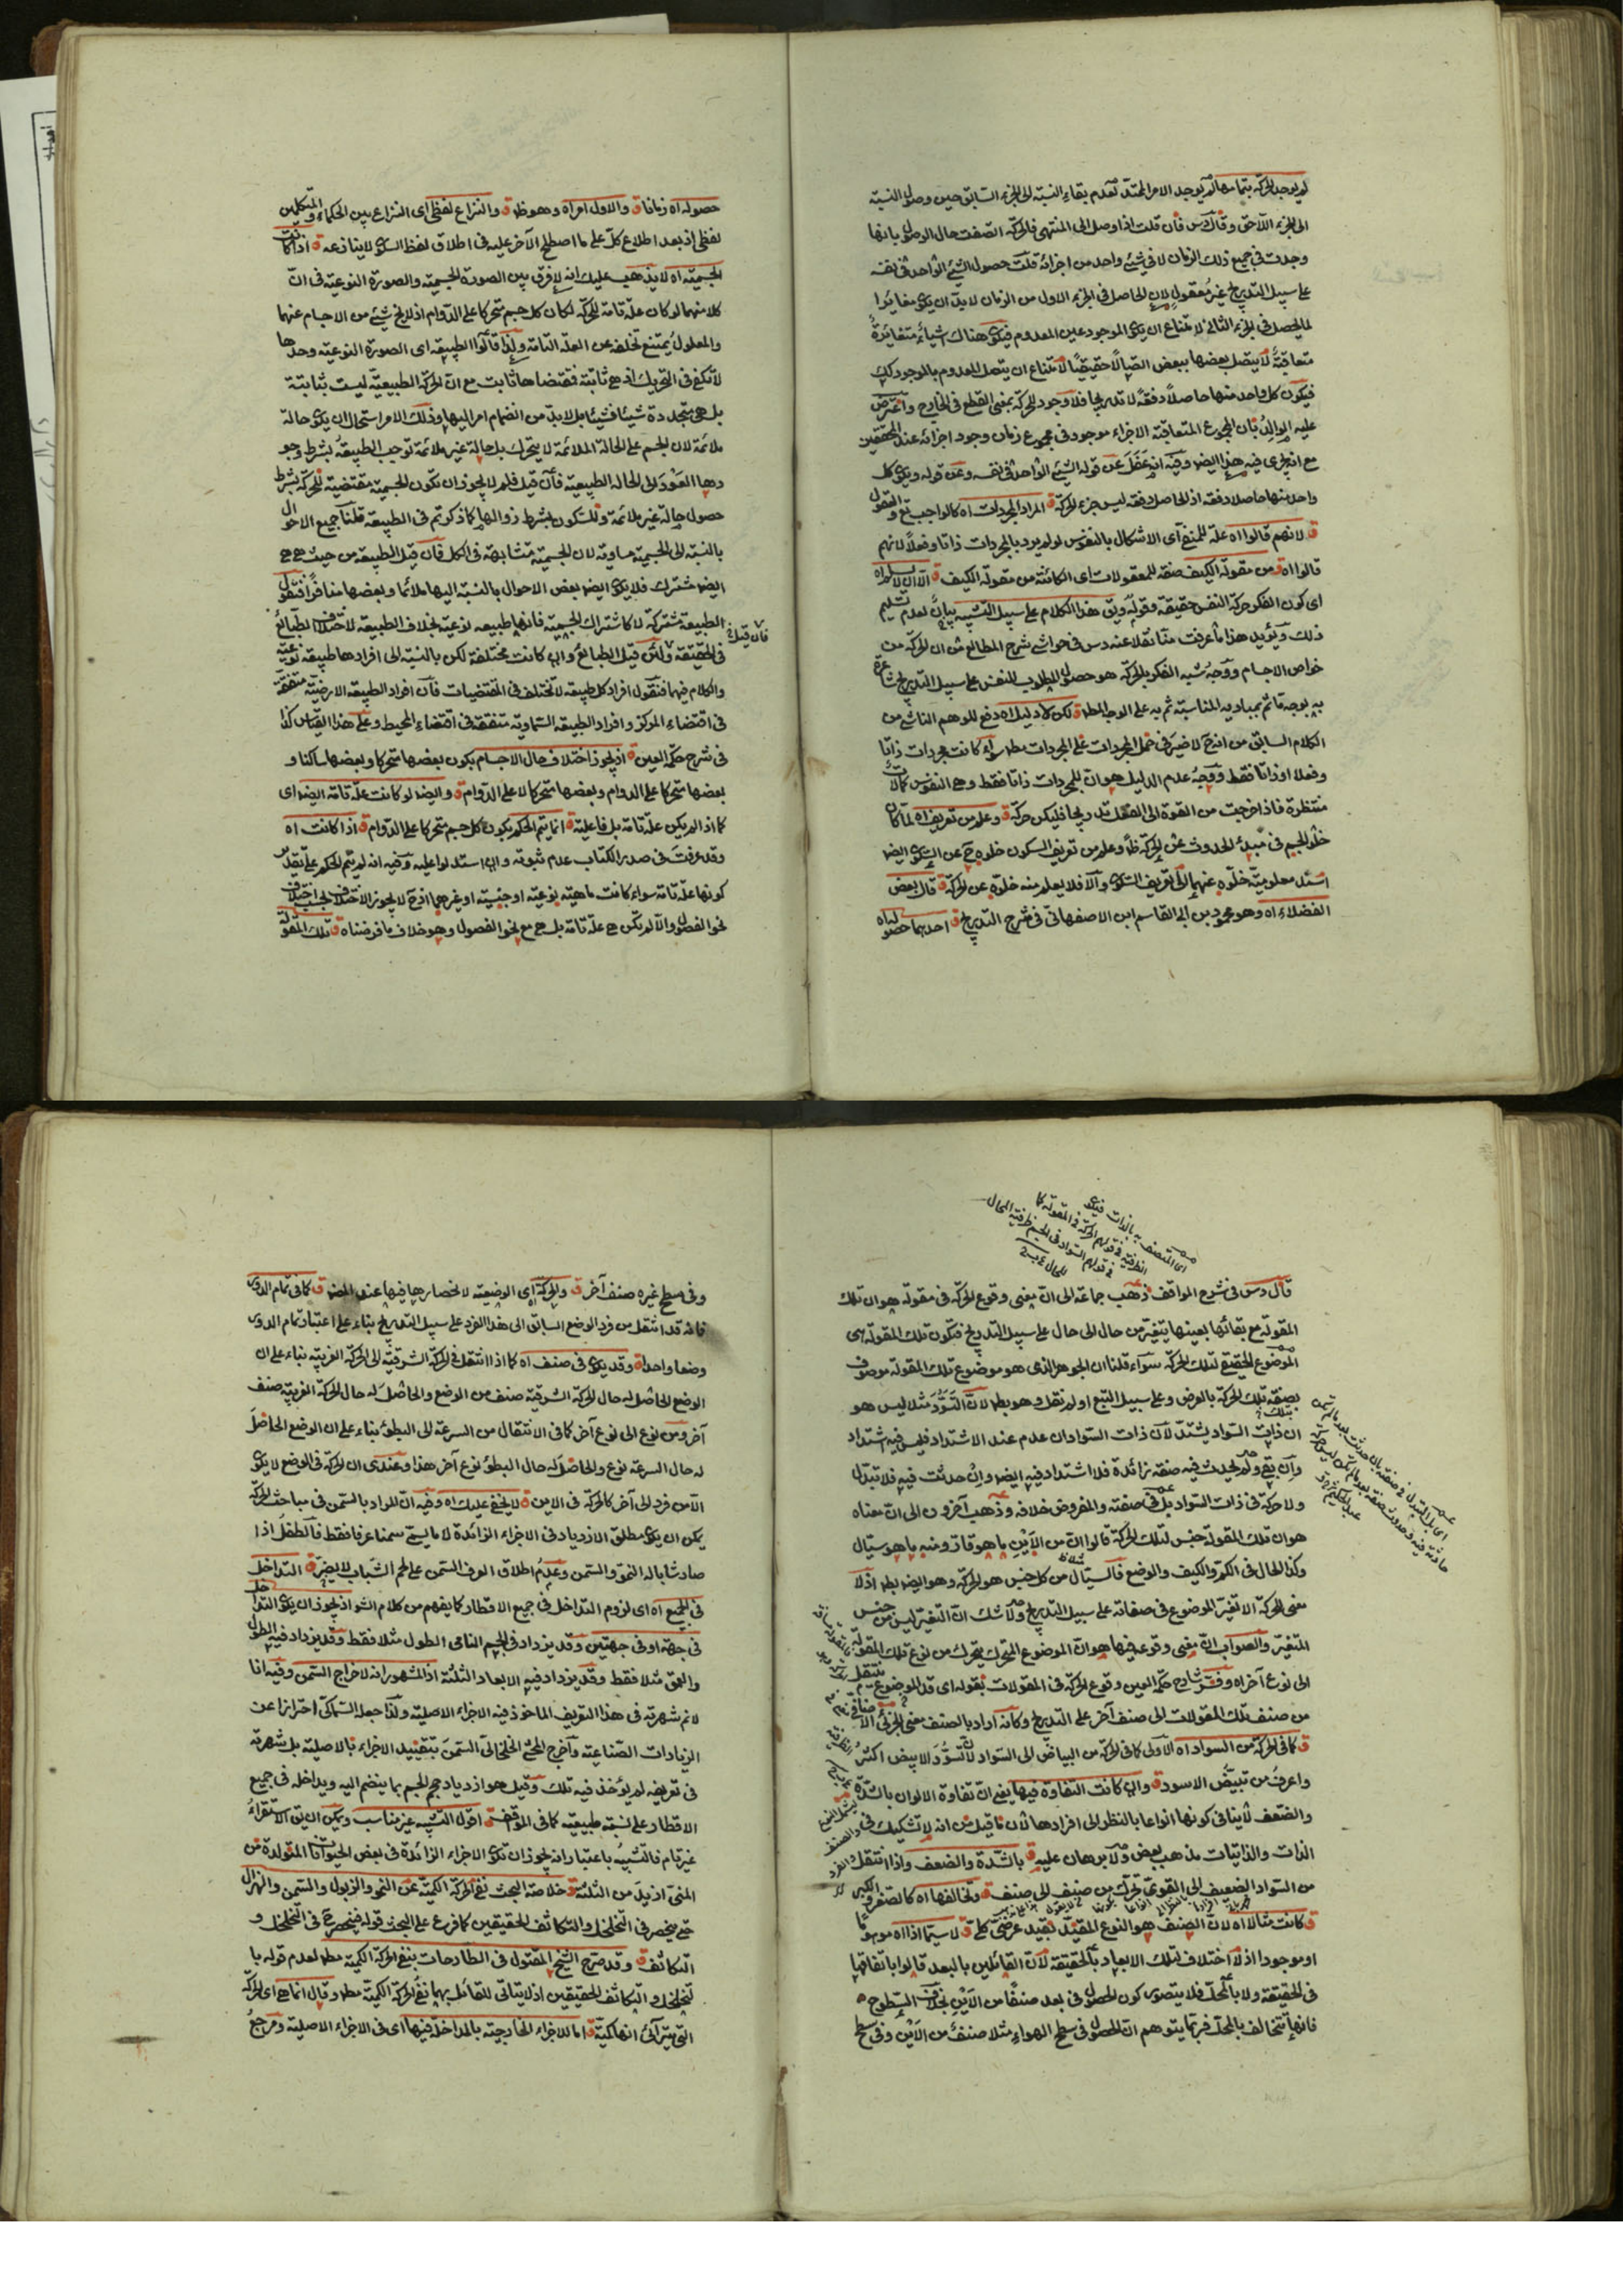 لم يوجد الحركة بتمامها لم يوجد الامر الممتد لعدم بقاء النسبة الى الجزء السابق حين وصول النسبة
الى الجزء اللاحق وقال س فان قلت اذا وصل الى المنتهى فالحركة اتصفت حال الوصول بانها
وجدت في جميع ذلك الزمان لا في شيئ واحد من اجزائه قلت حصول الشيئ الواحد في نفسه
على سبيل التدريج غير معقول لان الحاصل في الجزء الاول من الزمان لا بد ان يكون مغايرا
لما يحصل في الجزء الثاني لامتناع ان يكون الموجود عين المعدوم فيكون هناك اشياء متغايرة
متعاقبة لا يتصل بعضها ببعض اتصالا حقيقيا لامتناع ان يتصل المعدوم بالموجود كك
فيكون كل واحد منها حاصلا دفعة لا تدريجا فلا وجود للحركة بمعنى القطع في الخارج واعترض
عليه الوالد بان المجموع المتعاقبة الاجزاء موجود في مجموع زمان وجود اجزائه عند المحققين
مع انه يجرى فيه هذا ايضا وفيه انه غفل عن قوله الشيئ الواحد في نفسه وعن قوله ويكون كل
واحد منها حاصلا دفعة اذ الحاصل دفعة ليس جزء الحركة ق المراد المجردات اه كالواجب تع والعقول
ق لانهم قالوا اه علة للمنع اى الاشكال بالنفوس لو لم يرد بالمجردات ذاتا وفعلا لانهم
قالوا اه ق من مقولة الكيف صفة للمعقولات اى الكائنة من مقولة الكيف ق الا ان لا يسلم اه
اى كون الفكر حركة النفس حقيقة وقوله وبق هذا الكلام على سبيل التشبيه بيان لعدم تسليم
ذلك ويؤيد هذا ما عرفت منا نقلا عنه س في حواشى شرح المطالع من ان الحركة من
خواص الاجسام ووجه شبه الفكر بالحركة هو حصول المطلوب للنفس على سبيل التدريج
به بوجه ما ثم بمباديه المناسبة ثم به على الوجه المط ق لكن لا دليل اه دفع للوهم الناشى من
الكلام السابق من انه ح لا ضير في حمل المجردات على المجردات مطلقا سواء كانت مجردات ذاتا
وفعلا او ذاتا فقط ووجه عدم الدليل هو ان للمجردات ذاتا فقط وهى النفوس كمالات
منتظرة فاذا خرجت من القوة الى الفعل تدريجا فليكن حركة ق وعلم من تعريفه اه لما كان
خلو الجسم في مبدء الحدوث عن الحركة ظا وعلم من تعريف السكون خلوه ح عن السكون ايضا
اسند معلومية خلوه عنهما الى تعريف السكون والا فلا يعلم منه خلوه عن الحركة ق قال بعض
الفضلاء اه وهو محمود بن ابى القاسم ابن الاصفهانى في شرح التدريج ق احديهما حصوله اه
حصوله اه زمانا ق والاول امر اه وهو ظ ق والنزاع لفظى اى النزاع بين الحكماء والمتكلمين
لفظى اذ بعد اطلاع كل على ما اصطلح الآخر عليه في اطلاق لفظ السكون لا ينازعه ق اذا كانت
الجسمية اه لا يذهب عليك انه لا فرق بين الصورة الجسمية والصورة النوعية في ان
كلا منهما لو كان علة تامة للحركة لكان كل جسم متحركا على الدوام اذ لا يخ شيئ من الاجسام عنهما
والمعلول يمتنع تخلفه عن العلة التامة ولذا قالوا الطبيعة اى الصورة النوعية وحدها
لا تكفى في التحريك اذ هى ثابتة فمقتضاها ثابت مع ان الحركة الطبيعية ليست بثابتة
بل هى متجددة شيئا فشيئا بل لا بد من انضمام امر اليها وذلك الامر استحال ان يكون حالة
ملائمة لان الجسم على الحالة الملائمة لا يتحرك بل حالة غير ملائمة توجب الطبيعة بشرط وجو
دها العود الى الحالة الطبيعية فان قيل فلم لا يجوز ان تكون الجسمية مقتضية للحركة بشرط
حصول حالة غير ملائمة وللسكون بشرط زوالها كما ذكرتم في الطبيعة قلنا جميع الاحوال
بالنسبة الى الجسمية مساوية لان الجسمية متشابهة في الكل فان قيل الطبيعة من حيث هى هى
ايضا مشترك فلا يكون ايضا بعض الاحوال بالنسبة اليها ملائما وبعضها منافرا فنقول
الطبيعة مشتركة لا كاشتراك الجسمية فانها طبيعة نوعية بخلاف الطبيعة لاختلاف الطبائع
فان قيل
في الحقيقة ولئن قيل الطبائع وان كانت مختلفة لكن بالنسبة الى افرادها طبيعة نوعية
والكلام فيها فنقول افراد كل طبيعة لا تختلف في المقتضيات فان افراد الطبيعة الارضية متفقة
في اقتضاء المركز وافراد الطبيعة السماوية متفقة في اقتضاء المحيط وعلى هذا القياس كذا
في شرح حكمة العين ق اذ يجوز اختلاف حال الاجسام بكون بعضها متحركا وبعضها ساكنا و
بعضها متحركا على الدوام وبعضها متحركا لا على الدوام ق وايضا لو كانت علة تامة ايضا اى
كما اذا لم يكن علة تامة بل فاعلية ق انما يتم الحكم بكون كل جسم متحركا على الدوام ق اذا كانت اه
وقد عرفت في صدر الكتاب عدم ثبوته وان استدلوا عليه وفيه انه لم يتم الحكم على تقدير
كونها علة تامة سواء كانت ماهية نوعية او جنسية او غيرهما اذ ح لا يجوز الاختلاف بحسب اختلاف
نحو الفصول والا لم تكن هى علة تامة بل هى مع نحو الفصول وهو خلاف ما فرضناه ق تلك المقولة
اى المتصف به بالذات فيكون
الظرفية في قولهم الحركة في المقولة كا
في قولهم السواد في الجسم ظرفية المحال
للحال
قال س في شرح المواقف ذهب جماعة الى ان معنى وقوع الحركة في مقولة هو ان تلك
المقولة مع بقائها بعينها يتغير من حال الى حال على سبيل التدريج فتكون تلك المقولة هى
الموضوع الحقيقى لتلك الحركة سواء قلنا ان الجوهر الذى هو موضوع تلك المقولة موصوف
بصفة تلك الحركة بالعرض وعلى سبيل التبع او لم نقل وهو بط لان التسود مثلا ليس هو
ان ذات السواد يشتد لان ذات السواد ان عدم عند الاشتداد فليس فيه اشتداد
وان بقى ولم يحدث فيه صفة زائدة فلا اشتداد فيه ايضا وان حدثت فيه فلا تبدل
ولا حركة في ذات السواد بل في صفته والمفروض خلافه وذهب آخرون الى ان معناه
هو ان تلك المقولة جنس لتلك الحركة قالوا ان من الاين ما هو قار ومنه ما هو سيال
وكذا الحال في الكم والكيف والوضع فالسيال من كل جنس هو الحركة وهو ايضا بط اذ لا
معنى للحركة الا تغير الموضوع في صفاته على سبيل التدريج ولا شك ان التغير ليس من جنس
المتغير والصواب ان معنى وقوعه فيها هو ان الموضوع المتحرك يتحرك من نوع تلك المقولة
الى نوع آخر اه وفسر شارح حكمة العين وقوع الحركة في المقولات بقوله اى قد الموضوع ينتقل
من صنف تلك المقولات الى صنف آخر على التدريج وكانه اراد بالصنف معنى الجزئى الاضافى
ق كما في الحركة من السواد اه الاولى كما في الحركة من البياض الى السواد لان تسود الابيض اكثر
واعرف من تبيض الاسود ق وان كانت التفاوت فيها يعنى ان تفاوت الالوان بالشدة
والضعف لا ينافى كونها انواعا بالنظر الى افرادها لان ما قيل من انه لا تشكيك في
الذات والذاتيات مذهب بعض ولا برهان عليه ق بالشدة والضعف واذا انتقل
من السواد الضعيف الى القوى تحرك من صنف الى صنف ق وتخالفها اه كالصغر والكبر
ق كانت مثالا اه لان الصنف هو النوع المقيد بقيد عرضى كلى ق لا سيما اذا اه موهوما
او موجودا اذ لا اختلاف لتلك الابعاد بالحقيقة لان القائلين بالبعد قالوا باتفاقها
في الحقيقة ولا بالمحل فلا يتصور كون الحصول في بعد صنفا من الاين بخلاف السطوح
فانها تتخالف بالمحل فربما يتوهم ان الحصول في سطح الهواء مثلا صنف من الاين وفي سطح
وفى سطح غيره صنف آخر ق والحركة اى الوضعية لانحصارها فيها عند المص ق كما في تمام الدور
فانه قد انتقل من فرد الوضع السابق الى هذا الفرد على سبيل التدريج بناء على اعتبار تمام الدور
وضعا واحدا ق وقد يكون في صنف اه كما اذا انتقل في الحركة الشرقية الى الحركة الغربية بناء على ان
الوضع الحاصل له حال الحركة الشرقية صنف من الوضع والحاصل له حال الحركة الغربية صنف
آخر ومن نوع الى نوع آخر كما في الانتقال من السرعة الى البطؤ بناء على ان الوضع الحاصل
له حال السرعة نوع والحاصل له حال البطؤ نوع آخر هذا وعندى ان الحركة في الوضع لا يكون
الا من فرد الى آخر كالحركة في الاين ق لا يخفى عليك اه وفيه ان المراد بالسمن في مباحث الحركة
يمكن ان يكون مطلق الازدياد في الاجزاء الزائدة لا ما يسمى سمنا عرفا فقط فالطفل اذا
صار شابا له النمو والسمن وعدم اطلاق العرف السمن على لحم الشباب لا يضر ق التداخل
في الجميع اه اى لزوم التداخل في جميع الاقطار كما يفهم من كلام الش اذ يجوز ان يكون التداخل
في جهة او في جهتين وقد يزداد في الجسم النامى الطول مثلا فقط وقد يزداد فيه الطول
والعمق مثلا فقط وقد يزداد فيه الابعاد الثلثة اذ المشهور انه لاخراج السمن وفيه انا
لا نم شهرته في هذا التعريف الماخوذ فيه الاجزاء الاصلية ولذا جعله السماكى احترازا عن
الزيادات الصناعية واخرج المحشى الخلخالى السمن بتقييد الاجزاء بالاصلية بل شهرته
في تعريفه لم يؤخذ فيه تلك وقيل هو ازدياد حجم الجسم بما ينضم اليه ويداخله في جميع
الاقطار على نسبة طبيعية كما في المواقف ق اقول التشبيه غير مناسب ويمكن ان يق الاستقراء
غير تام فالتشبيه باعتبار انه يجوز ان تكون الاجزاء الزائدة في بعض الحيوانات المتولدة من
المنى ازيد من الثلثة ق خلاصة البحث نفى الحركة الكمية عن النمو والذبول والسمن والهزال
حتى ينحصر في التخلخل والتكاثف الحقيقيين كما فرع على البحث قوله فينحصر ح في التخلخل و
التكاثف ق وقد صرح الشيخ المقتول في المطارحات بنفى الحركة الكمية مطلقا لعدم قوله با
لتخلخل والتكاثف الحقيقيين اذ لا يتاتى للقائل بهما نفى الحركة الكمية مطلقا وقال انما هى اى الحركة
التى يتراآى انها كمية ق اما للاجزاء الخارجية بالمداخلة فيها اى في الاجزاء الاصلية ومرجع